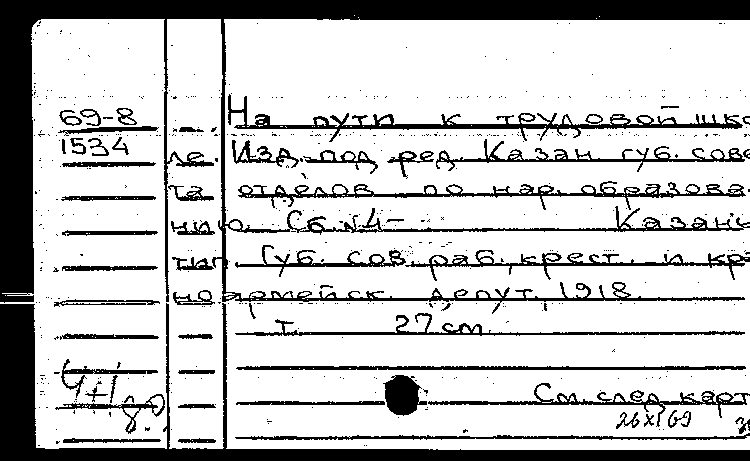 69-8 На пути к трудовой шко
1534 ле. Изд. под ред. Казан губ. сове
та отделов по нар. образова
нию. Сб. №4- Казань
тип. Губ. сов. раб., крест. и кра
ноармейск. депут., 1918.
т. 27 см
См. след карт
26 XI 69